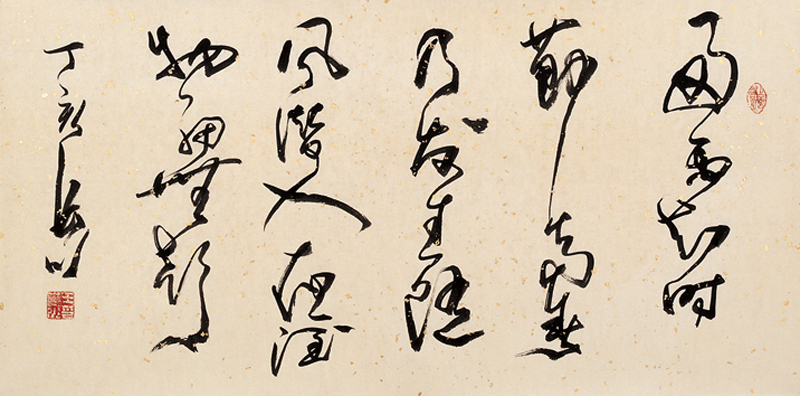 好雨知时
節当春
乃发生随
风潜入夜润
物细無声
丁亥